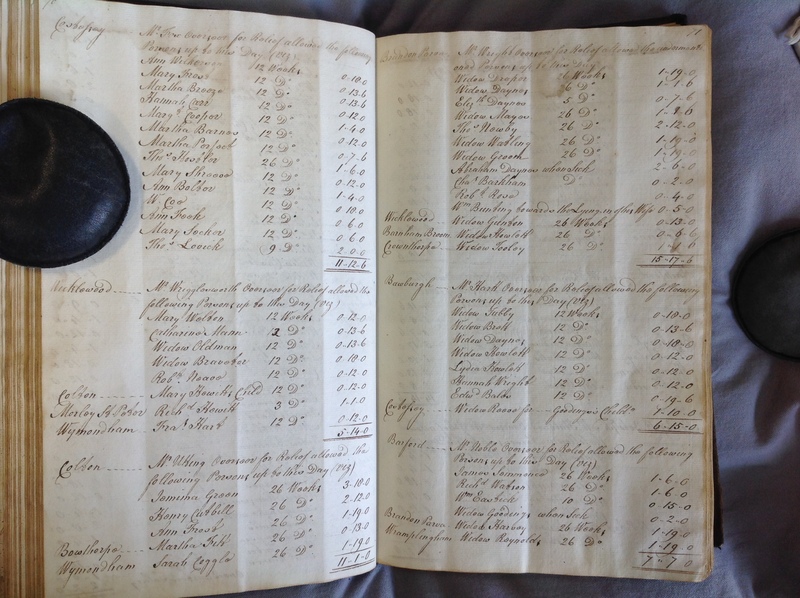 Costessey Mr. Fox overseer for Relief allowed the following
Persons up to this Day (viz)
Ann Wilkerson 12 Weeks 0-18-0
Mary Frost 12 Do 0-13-6
Martha Breeze 12 Do 0-13-6
Hannah Carr 12 Do 0-12-0
Mary Cooper 12 Do
Martha Barnes 12 Do 1-4-0
Martha Perfect 12 Do 0-12-0
Thos 26 Do 0-7-6
Mary 12 Do 1-6-0
Ann Bolter 12 Do 0-12-0
W. Coe 12 Do 1-4-0
Ann 12 Do 0-18-0
Mary 12 Do 0-6-0
Thos 9 Do 0-6-0
2-0-0
11-12-6
Wicklewood Mr. Wigglesworth Overseer for Relief allowed the
following Persons up to this Day (viz)
Mary Walton 12 Weeks 0-12-0
Catharine Mann 12 Do 0-13-6
Widow Oldman 12 Do 0-13-6
Widow 12 Do 0-18-0
Robt. 12 Do 0-12-0
Colton Mary Howitts Child 12 Do 0-12-0
Morley St Peter Richd Howitt 3 Do 1-1-0
Wymondham Fras Hart 12 Do 0-12-0
5-14-0
Colton Mr. Utting Overseer for Relief allowed the
following Persons up to this Day (viz)
Jemima Green 26 Weeks 3-18-0
Henry 26 Do 2-12-0
Ann Frost 26 Do 1-19-0
Bowthorpe Martha 26 Do 0-13-0
Wymondham Sarah 26 Do 1-19-0
11-1-0
Mr. Wright Overseer for Relief allowed
Persons up to this Day
Widow Draper 26 Weeks 1-19-0
Widow Daynes 6 Do 1-1-6
Elizth Daynes 5 Do 0-7-6
Widow Mayes 26 Do
Thos Newby 26 Do 2-12-0
Widow Watling 26 Do 1-19-0
Widow Geooch 26 Do 1-19-0
Abraham Daynes when Sick 2-6-0
Chas Barkham Do 0-2-0
Robt Rose 0-4-0
Wm Bunting towards the Lying in of his Wife 0-5-0
Wicklewood Widow 26 Weeks 0-13-0
Barnham Broom Widow Howlett 26 Do
Crownthorpe Widow Tooley 26 Do
15-17-6
Bawburgh Mr. Overseer for Relief allowed the following
Persons up to this Day (viz)
Widow Tubby 12 Weeks 0-18-0
Widow Brett 12 Do 0-13-6
Widow Daynes 12 Do 0-18-0
Widow Howlett 12 Do 0-12-0
Lydia Howlett 12 Do 0-12-0
Hannah Wright 12 Do 0-12-0
Edwd 12 Do 0-19-6
Costessey Widow for Goodings Childn 1-10-0
6-15-0
Barford Mr. Noble Overseer for Relief allowed the following
Persons up to this Day (viz)
James Simmons 26 Weeks 1-6-0
Richd Watson 26 Do 1-6-0
Wm 10 Do 0-15-0
Widow Goodings when Sick 0-2-0
Brandon Parva Widow Harvey 26 Weeks 1-19-0
Wramplingham Widow Reynolds 26 Do 1-19-0
7-7-0